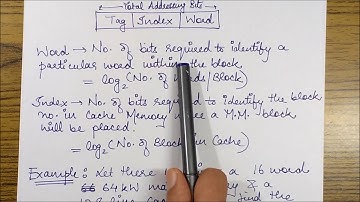 Total Addressing Bits
Tag Index Word
Word → No. of bits required to identify a
particular word within the block
= log2 (No. of Words/Block)
Index → No. of bits required to identify the block
no. in cache Memory where a M.M. block
will be placed.
= log2 (No. of Block in Cache)
Example: Let there is a 16 word
64 kW main &amp; a
find the